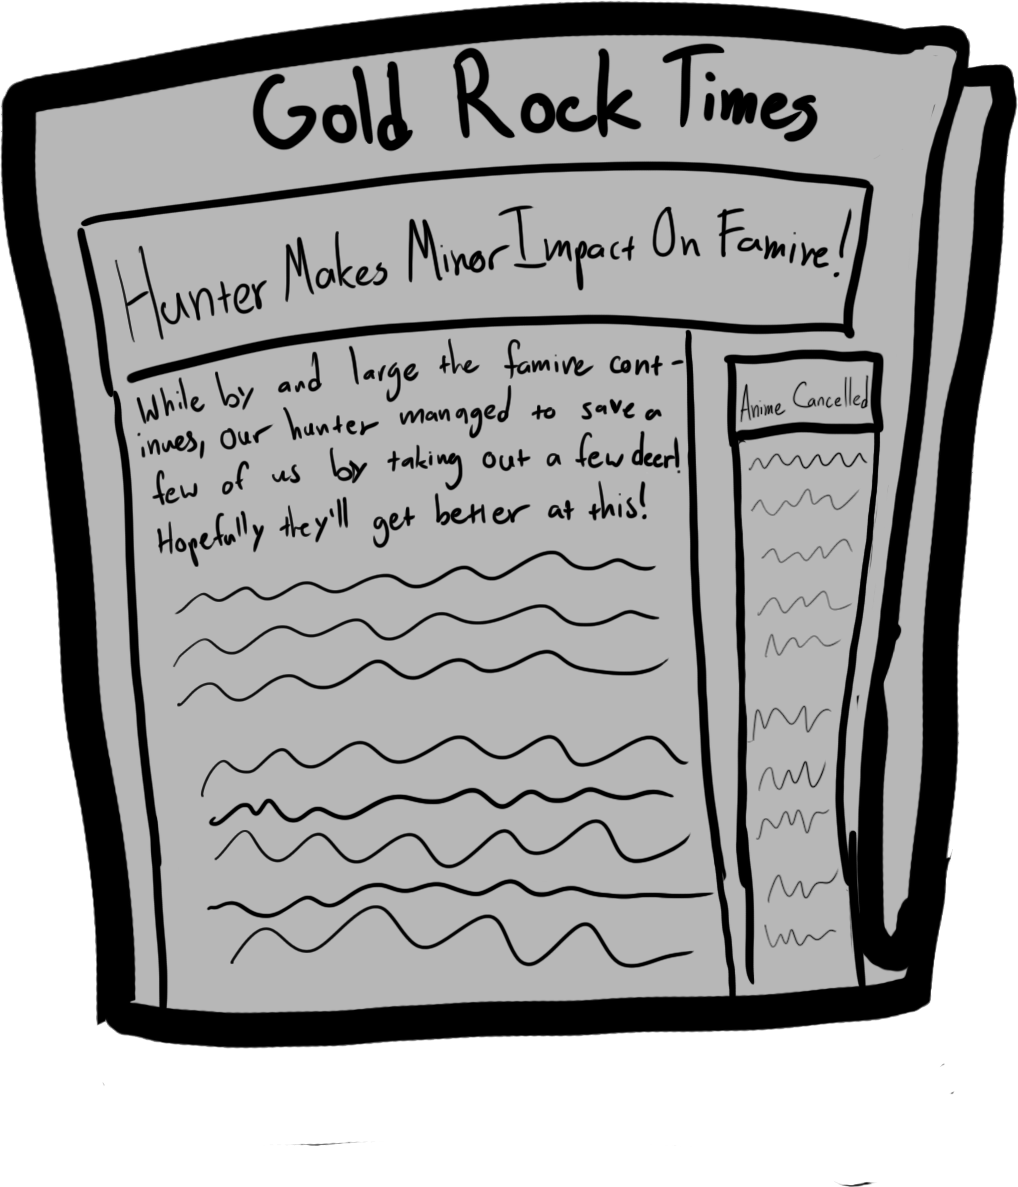 Gold Rock Times
Hunter Makes Minor Impact On Famine!
While by and large the famine cont-
inues, our hunter managed to save a
few of us by taking out a few deer!
Hopefully they'll get better at this!
Anime Cancelled